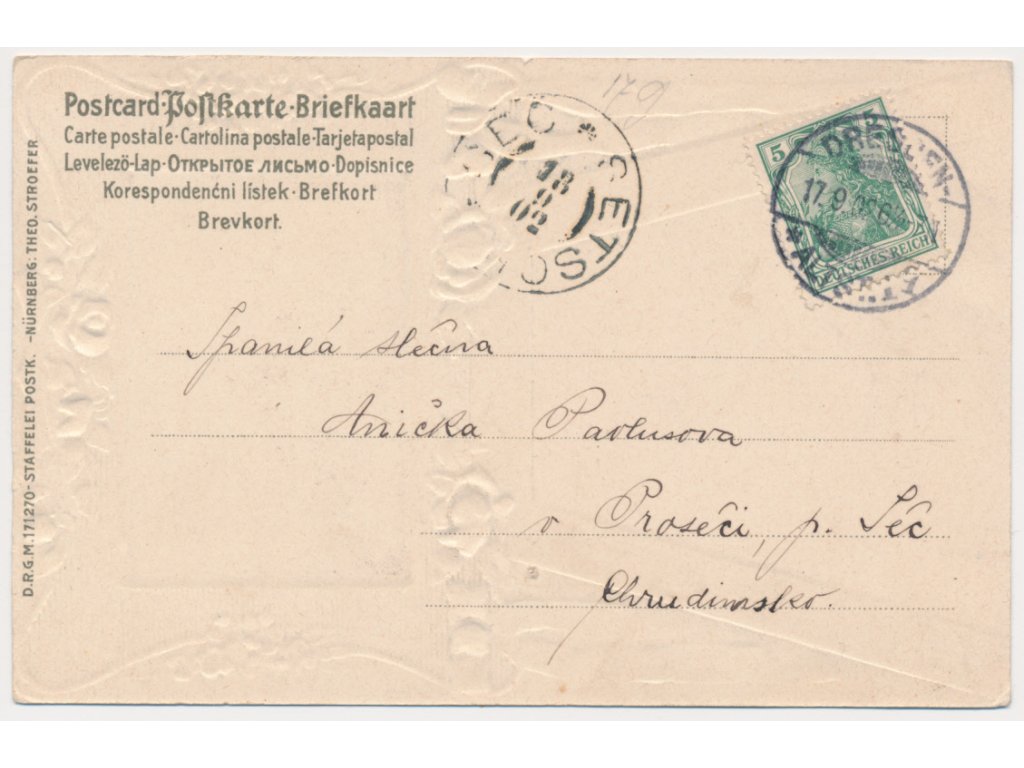 179
Postcard·Postkarte·Briefkaart
Carte postale·Cartolina postale·Tarjetapostal
Levelező-Lap·Открытое лисьмо·Dopisnice
Korespondenćni lístek·Brefkort
Brevkort.
D.R.G.M. 171270-STAFFELEI POSTK. -NÜRNBERG: THEO. STROEFER
* SETSCH
18
9
02
5
5
DEUTSCHES REICH
DRESDEN-
17.9.
Spanilá slečna
Anička Pavlusova
v Proseči, p. Séč
Chrudimsko.